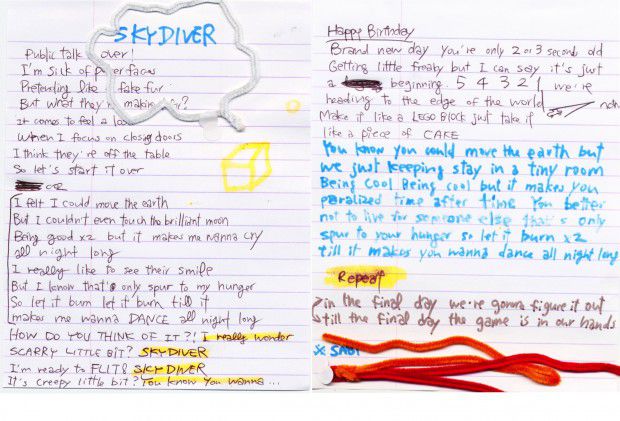 SKYDIVER
Public talk over!
I'm sick of paper faces
Pretending like fake fur
But what they making for?
It comes to feel a
When I focus on closing doors
I think they're off the table
So let's start it over
I felt I could move the earth
But I couldn't even touch the brilliant moon
Being good x2 but it makes me wanna cry
all night long
I really like to see their smile
But I know that's only spur to my hunger
So let it burn let it burn till it
makes me wanna DANCE all night long
HOW DO YOU THINK OF IT?! I really wonder
SCARRY LITTLE BIT? SKYDIVER
I'm ready to FLIT! SKYDIVER
It's creepy little bit? You know You wanna...
Happy Birthday
Brand new day you're only 2 or 3 second old
Getting little freaky but I can say it's just
a beginning. 5 4 3 2 1 we're
heading to the edge of the world
Make it like a LEGO BLOCK just take it
like a piece of CAKE
You know you could move the earth but
we just keeping stay in a tiny room
Being cool Being cool but it makes you
paralized time after time You better
not to live for someone else that's only
spur to your hunger so let it burn x2
till it makes you wanna dance all night long
Repeat
in the final day we're gonna figure it out
till the final day the game is in our hands